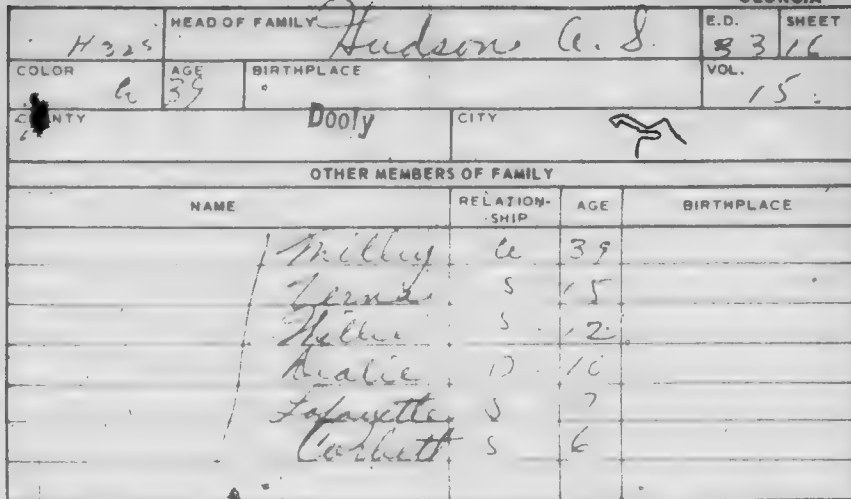 GEORGIA
HEAD OF FAMILY Hudson, A. S. E.D. SHEET
H325 33 16
COLOR AGE BIRTHPLACE VOL.
39 15
COUNTY Dooly CITY
OTHER MEMBERS OF FAMILY
NAME RELATION-SHIP AGE BIRTHPLACE
Milley 39
S 15
Willie S 12
D 10
Lafayette S 7
Corbett S 6